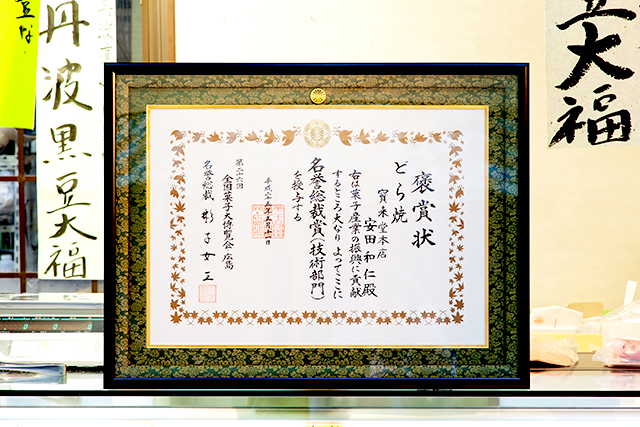 褒賞状
どら焼
寳来堂本店
安田和仁殿
右は菓子産業の振興に貢献
するところ大なりよってここに
名誉総裁賞(技術部門)
を授与する
平成二十五年五月十一日
第二十六回
全国菓子大博覧会・広島
名誉総裁 彬子女王
丹波黒豆大福
豆大福